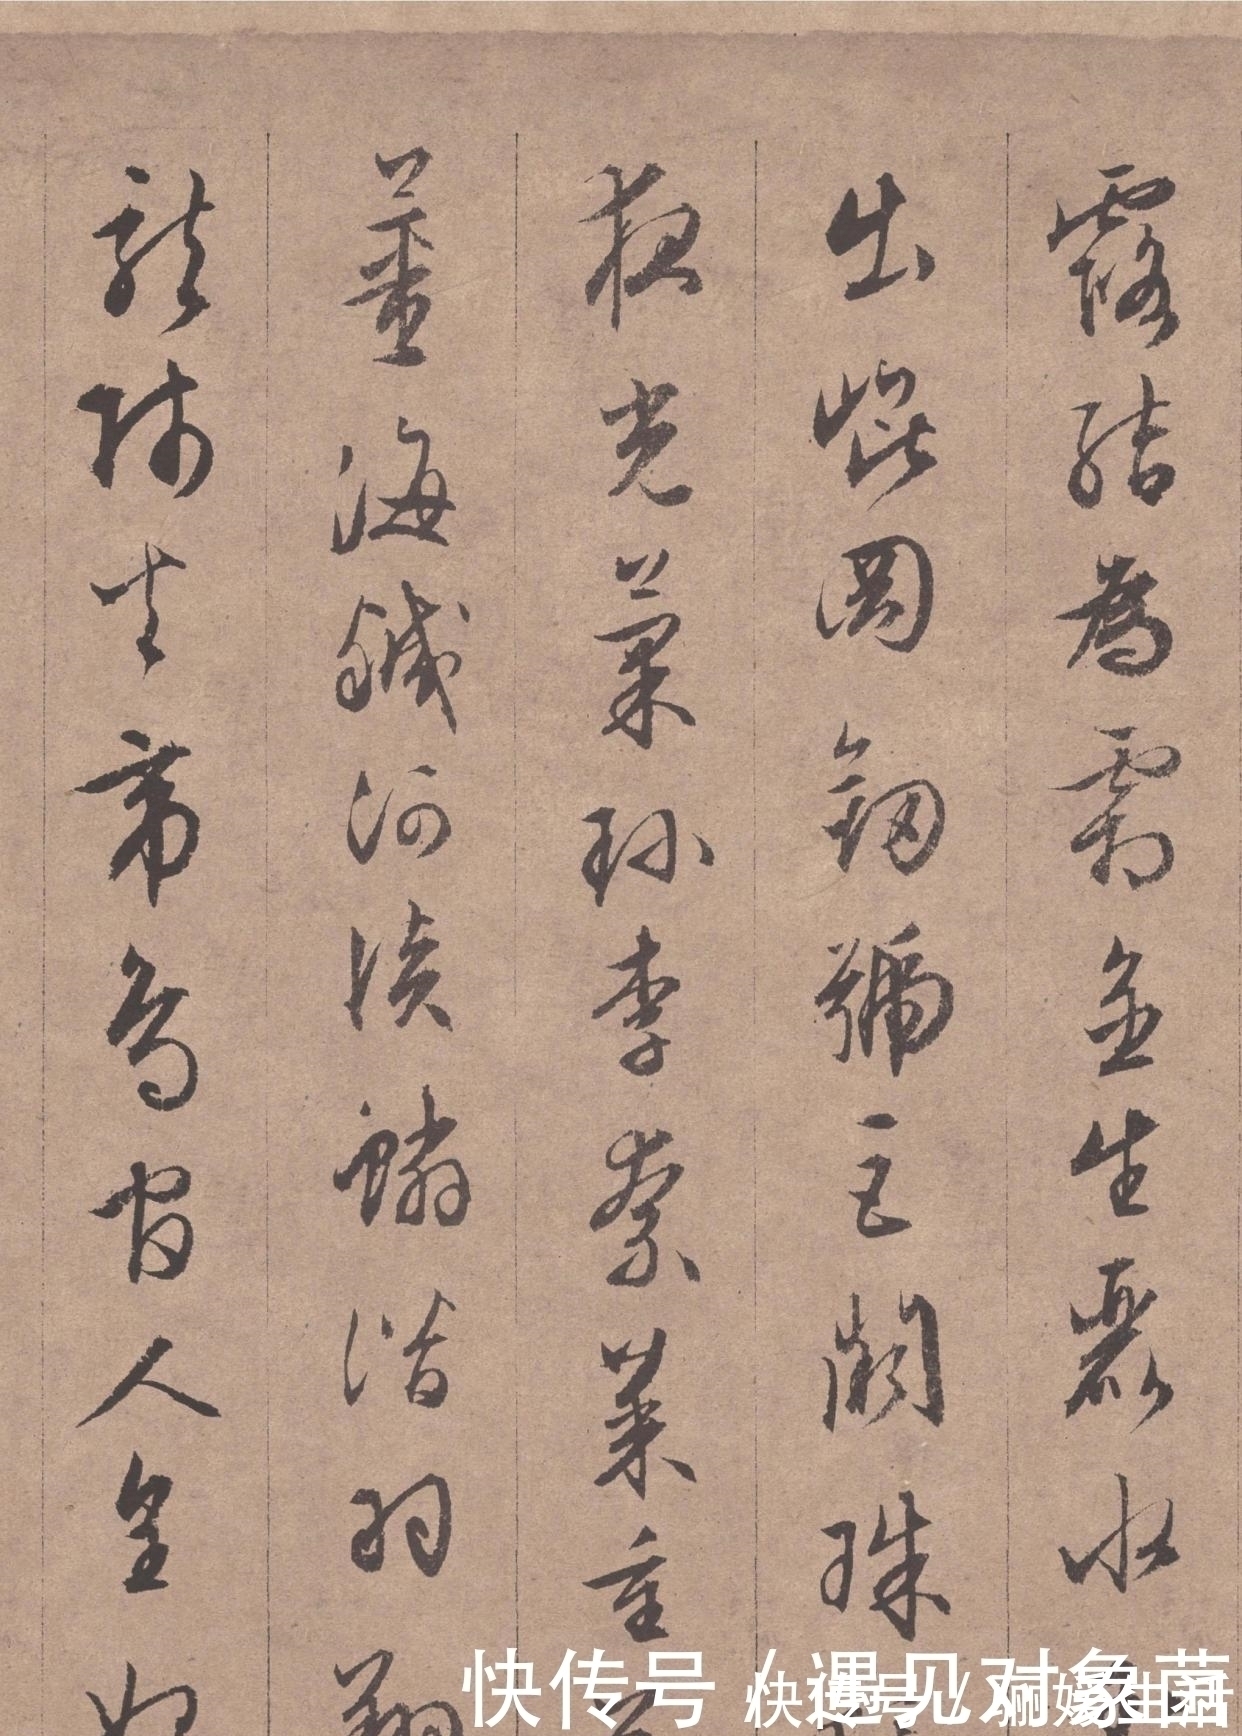 露结為霜金生麗水
出崐岡釰號巨闕珠
夜光菓珎李柰菜重
薑海鹹河淡鱗潛羽
龍師火帝鳥官人皇
快传号 / 遇见对象菌